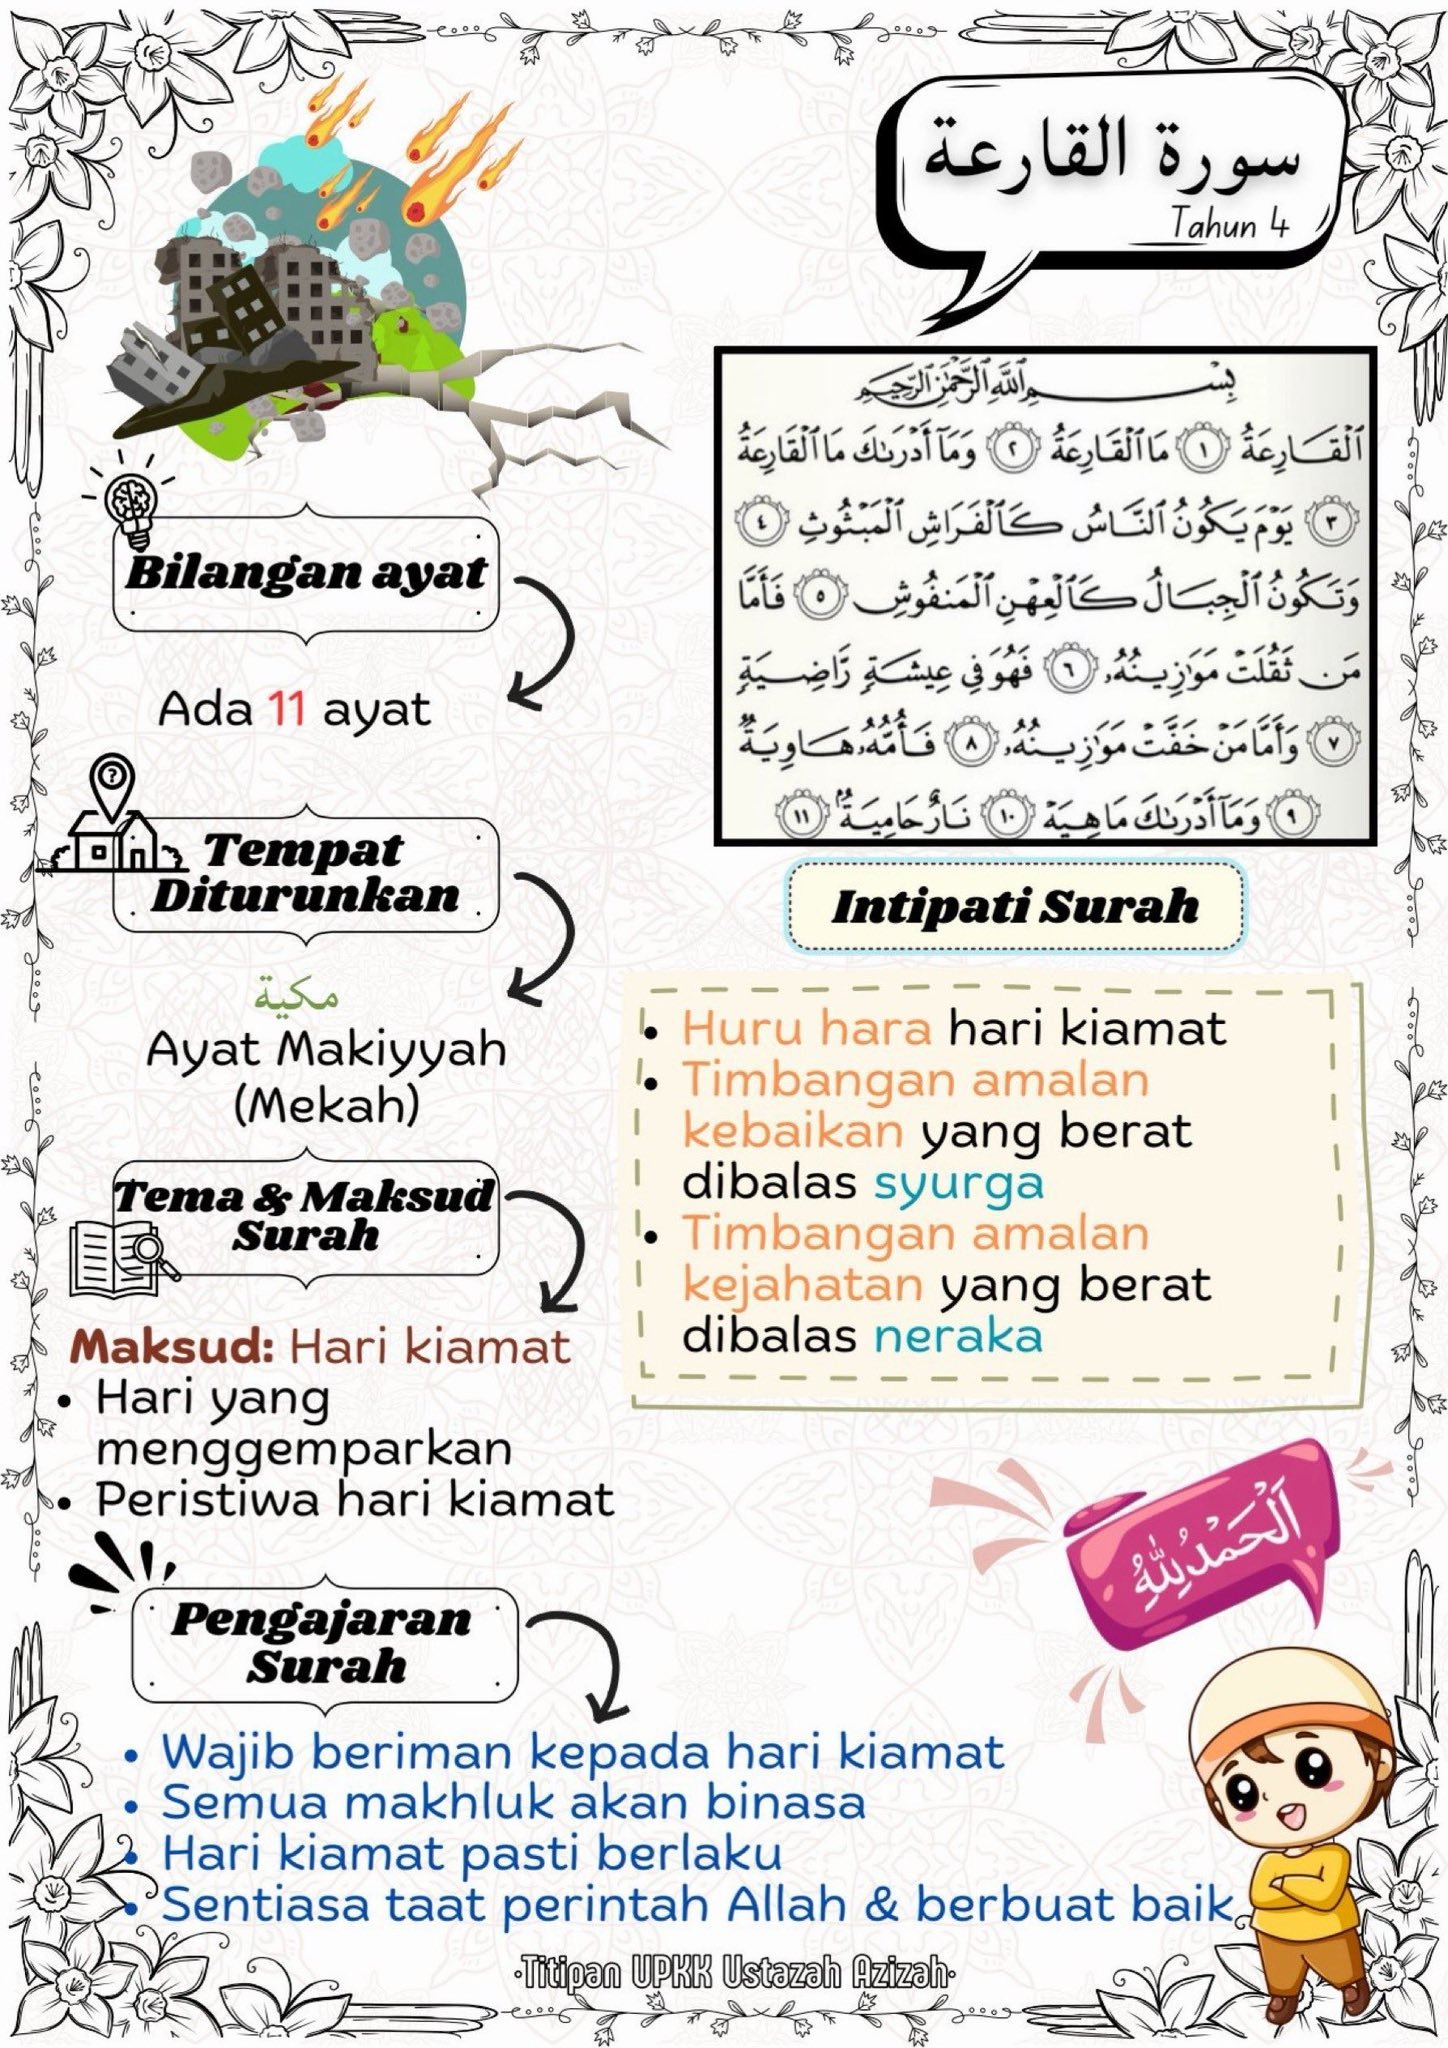 سورة القارعة
Tahun 4
بِسْمِ ٱللَّهِ ٱلرَّحْمَٰنِ ٱلرَّحِيمِ
ٱلْقَارِعَةُ ١ مَا ٱلْقَارِعَةُ ٢ وَمَآ أَدْرَىٰكَ مَا ٱلْقَارِعَةُ
٣ يَوْمَ يَكُونُ ٱلنَّاسُ كَٱلْفَرَاشِ ٱلْمَبْثُوثِ ٤
وَتَكُونُ ٱلْجِبَالُ كَٱلْعِهْنِ ٱلْمَنفُوشِ ٥ فَأَمَّا
مَن ثَقُلَتْ مَوَٰزِينُهُۥ ٦ فَهُوَ فِى عِيشَةٍ رَّاضِيَةٍ
٧ وَأَمَّا مَنْ خَفَّتْ مَوَٰزِينُهُۥ ٨ فَأُمُّهُۥ هَاوِيَةٌ
٩ وَمَآ أَدْرَىٰكَ مَا هِيَهْ ١٠ نَارٌ حَامِيَةٌۢ ١١
Bilangan ayat
Ada 11 ayat
Tempat
Diturunkan
مكية
Ayat Makiyyah
(Mekah)
Tema & Maksud
Surah
Maksud: Hari kiamat
• Hari yang
menggemparkan
• Peristiwa hari kiamat
Intipati Surah
• Huru hara hari kiamat
• Timbangan amalan
kebaikan yang berat
dibalas syurga
• Timbangan amalan
kejahatan yang berat
dibalas neraka
اَلْحَمْدُ لِلّٰهِ
Pengajaran
Surah
• Wajib beriman kepada hari kiamat
• Semua makhluk akan binasa
• Hari kiamat pasti berlaku
• Sentiasa taat perintah Allah & berbuat baik
•Titipan UPKK Ustazah Azizah•